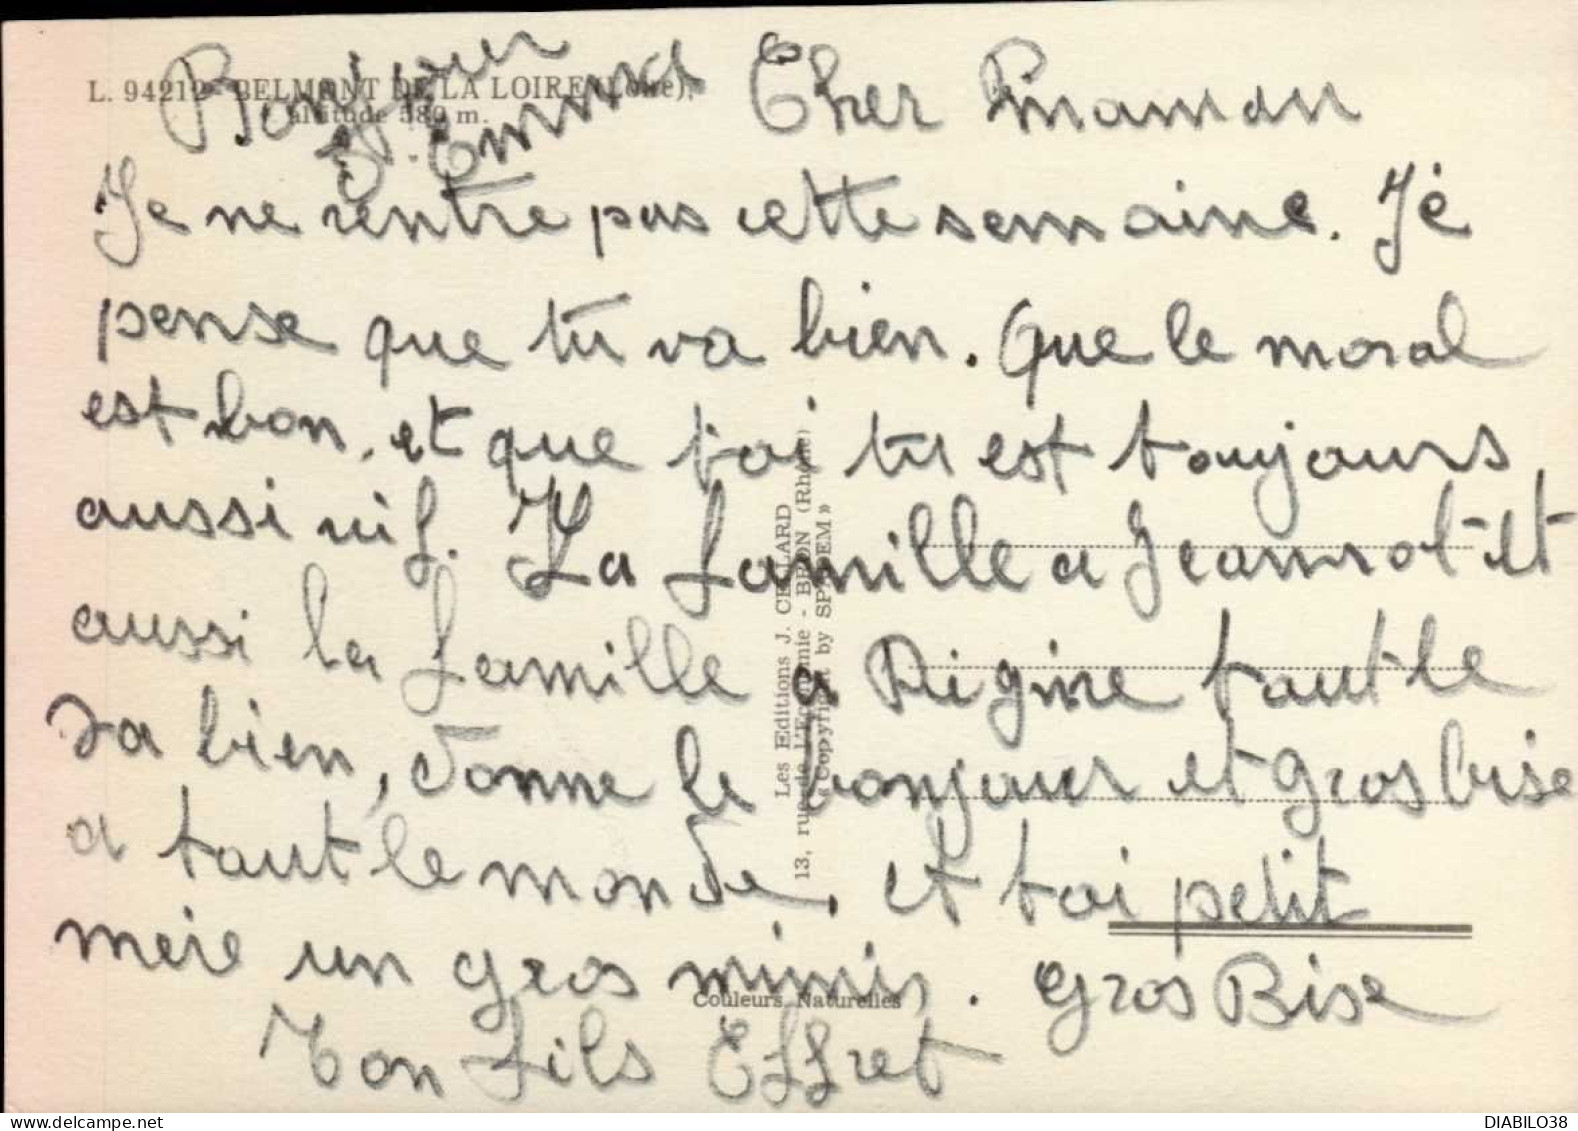 L. 94212 - BELMONT DE LA LOIRE (Loire),
altitude 580 m.
Bonjour
Emma
Cher Maman
Je ne rentre pas cette semaine. Je
pense que tu va bien. Que le moral
est bon, et que toi tu est toujours
aussi vif. La famille a Jeannot et
aussi la famille a Rigine tout le
va bien, donne le bonjour et gros bise
a tout le monde, et toi petit
mère un gros mimis. gros Bise
Ton fils Effret
Les Editions J. CELLARD
13, rue de L'Economie - BRON (Rhône)
« Copyright by SPADEM »
Couleurs Naturelles
DIABILO38
www.delcampe.net